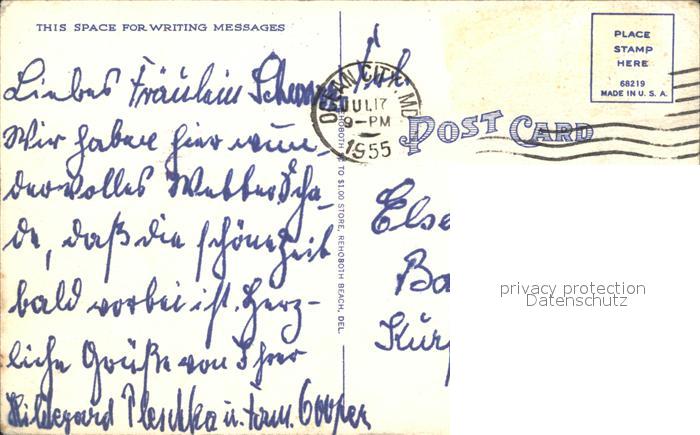 THIS SPACE FOR WRITING MESSAGES
Liebes Fräulein
Wir haben hier wun-
dervolles Wetter. Scha-
de, daß die schöne Zeit
bald vorbei ist. Herz-
liche Grüße von Ihrer
Hildegard Pleschka u. Fam. Cooper
OCEAN CITY, MD.
JUL 17
9-PM
1955
REHOBOTH 5¢ TO $1.00 STORE, REHOBOTH BEACH, DEL.
POST CARD
PLACE
STAMP
HERE
68219
MADE IN U. S. A.
Frl.
Else
Ba
privacy protection
Datenschutz